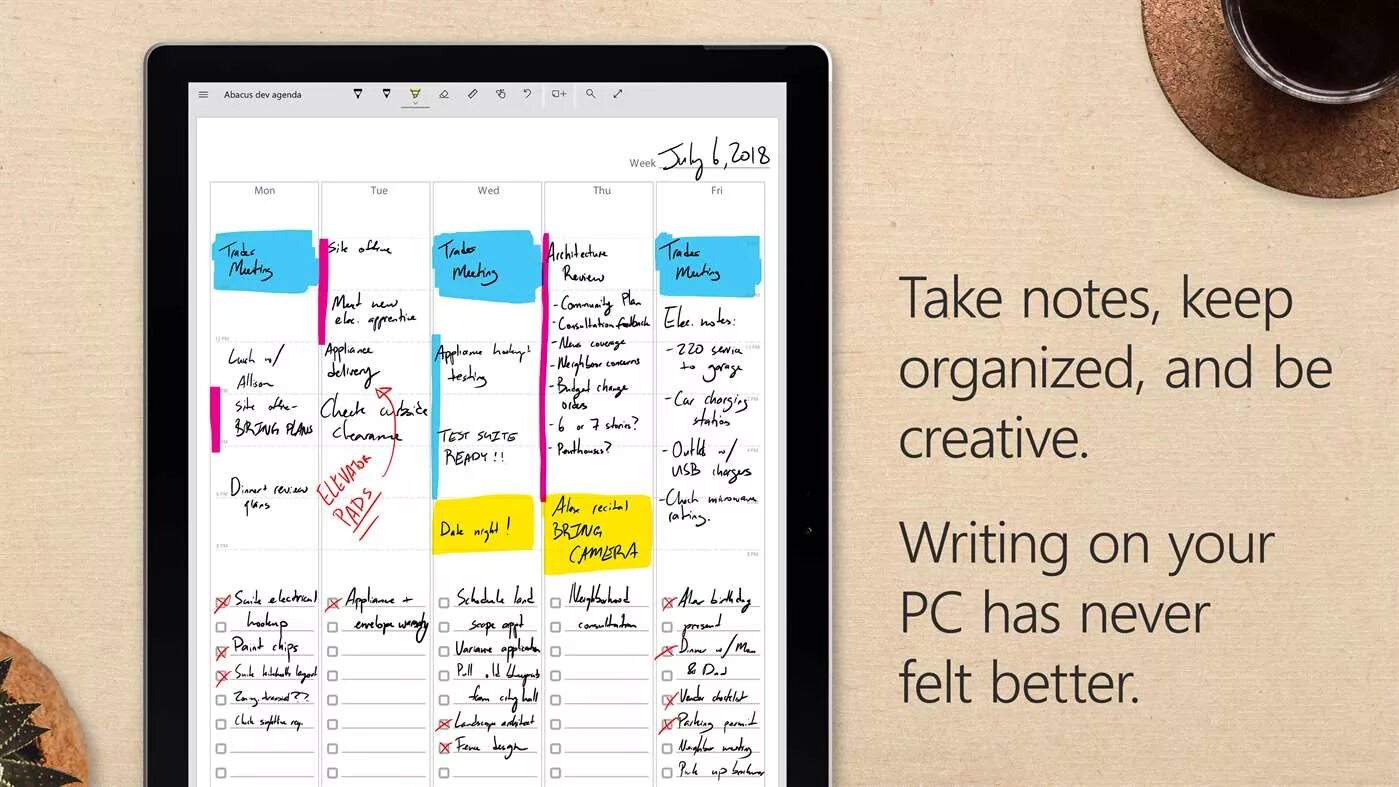 Abacus dev agenda
Week July 6, 2018
Mon
Tue
Wed
Thu
Fri
Trades
Meeting
12 PM
Lunch w/
Allison
Site office -
BRING PLANS
6 PM
Dinner + review
plans
8 PM
Suite electrical
hookup
Paint chips
Suite kitchen layout
Zoning transit??
Check sightline req.
Site office
Meet new
elec. apprentice
Appliance
delivery
Check curbside
clearance
ELEVATOR
PADS
Appliance +
envelope warranty
Trades
Meeting
Appliance hookup +
testing
TEST SUITE
READY!!
Date night!
Schedule land
scape appt
Variance application
Pull old blueprints
from city hall
Landscape architect
Fence design
Architecture
Review
- Community Plan
- Consultation feedback
- News coverage
- Neighbour concerns
- Budget change
orders
- 6 or 7 stories?
- Penthouses?
Alex recital
BRING
CAMERA
Neighborhood
consultation
Trades
Meeting
Elec. notes:
- 220 service
to garage
- Car charging
station
- Outlet w/
USB chargers
- Check microwave
rating.
8 PM
Alex birthday
present
Dinner w/ Mom
& Dad
Vendor checklist
Parking permit
Neighbor meeting
Pick up brochures
Take notes, keep
organized, and be
creative.
Writing on your
PC has never
felt better.